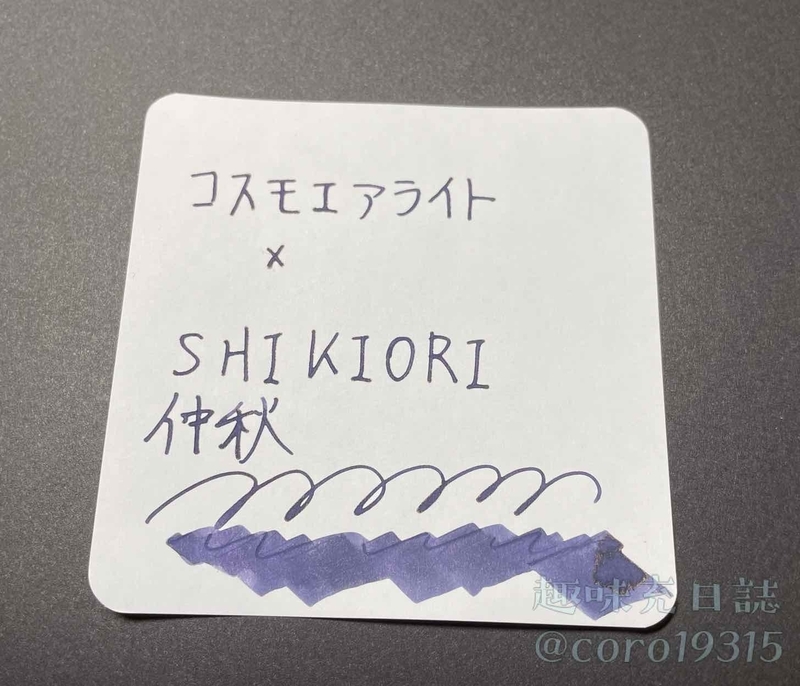 コスモエアライト
×
SHIKIORI
仲秋
趣味充日誌
@coro19315